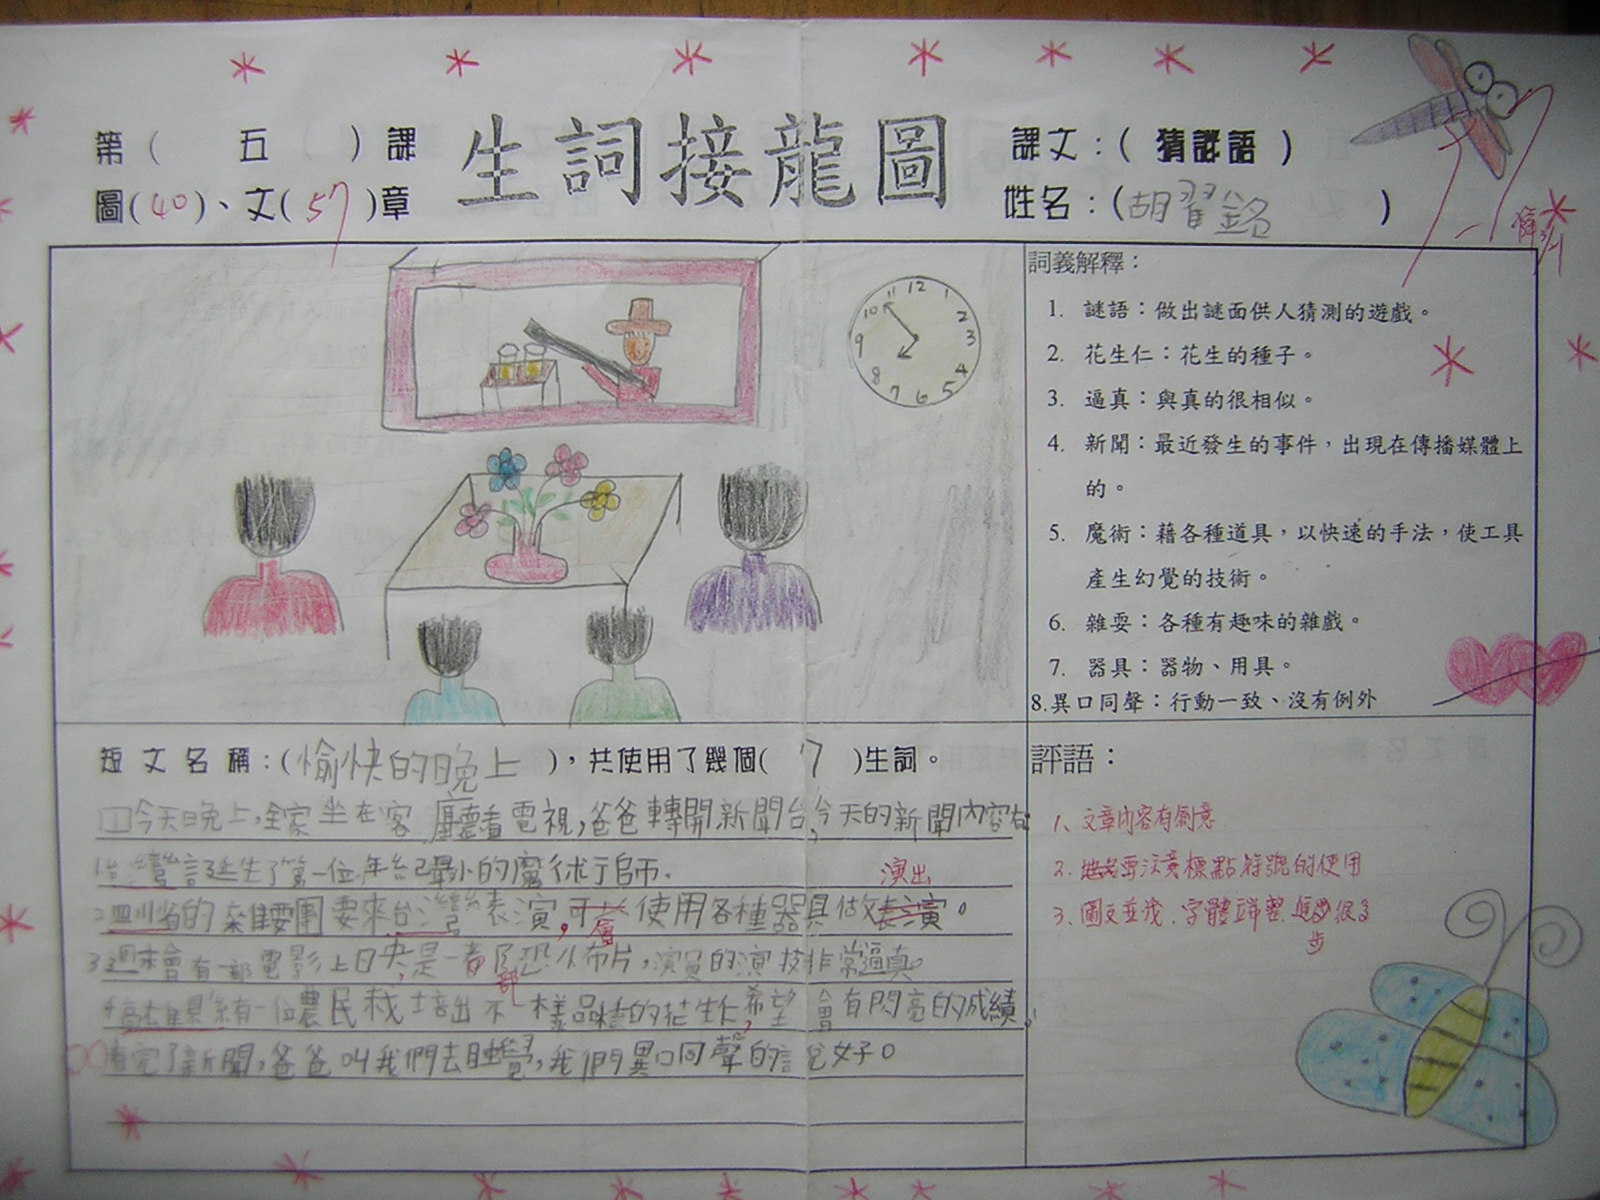 第( 五 )課
生詞接龍圖
課文:( 猜謎語 )
圖(40)、文(57)章
姓名:(胡習銘 )
詞義解釋:
1. 謎語:做出謎面供人猜測的遊戲。
2. 花生仁:花生的種子。
3. 逼真:與真的很相似。
4. 新聞:最近發生的事件,出現在傳播媒體上
的。
5. 魔術:藉各種道具,以快速的手法,使工具
產生幻覺的技術。
6. 雜耍:各種有趣味的雜戲。
7. 器具:器物、用具。
8.異口同聲:行動一致、沒有例外
11 12 1
10 2
9 3
8 4
7 6 5
97
短文名稱:(愉快的晚上 ),共使用了幾個( 7 )生詞。
今天晚上,全家坐在客廳看電視,爸爸轉開新聞台,今天的新聞內容有
1.台灣誕生了第一位年紀最小的魔術師。
演出
2.四川省的雜耍團要來台灣表演,可以使用各種器具做表演。
會
3.週末會有一部電影上映,是一部恐怖片,演員的演技非常逼真。
部
4.高雄縣有一位農民栽培出不一樣品種的花生仁,希望會有閃亮的成績。
看完了新聞,爸爸叫我們去睡覺,我們異口同聲的說好。
評語:
1、文章內容有創意
2.要注意標點符號的使用
3、圖文並茂、字體端整、進步很多
步